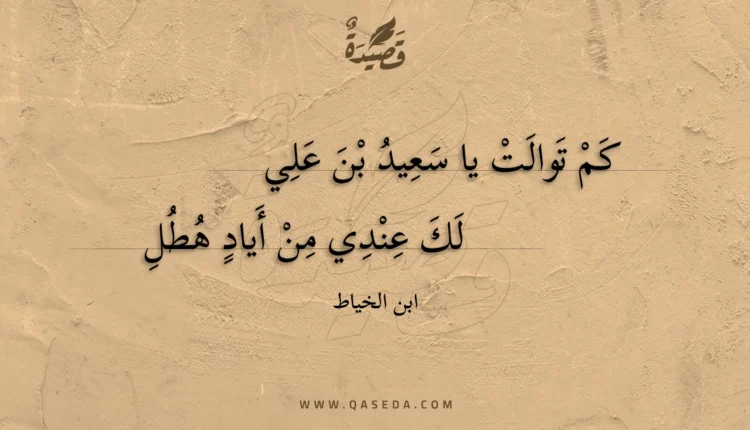 قَصِيدَةٌ
كَمْ تَوالَتْ يا سَعِيدُ بْنَ عَلِي
لَكَ عِنْدِي مِنْ أَيادٍ هُطُلِ
ابن الخياط
WWW.QASEDA.COM